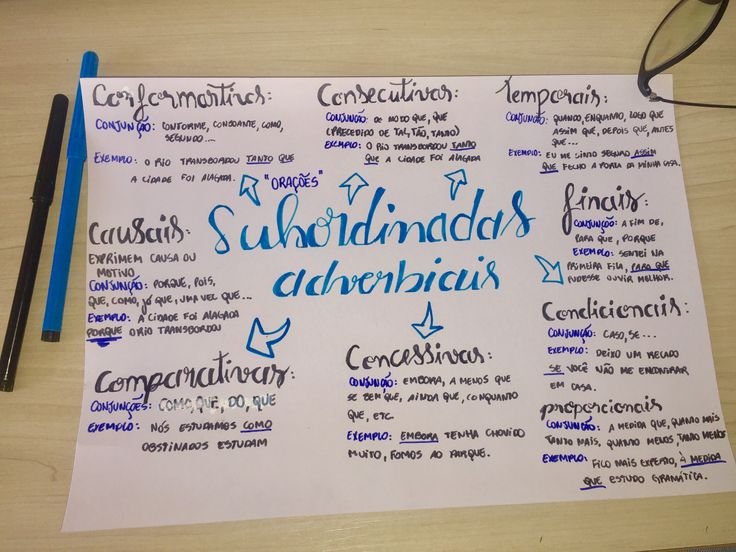 Conformartivas:
CONJUNÇÃO: CONFORME, CONSOANTE, COMO,
SEGUNDO....
EXEMPLO: O RIO TRANSBORDOU TANTO QUE
A CIDADE FOI ALAGADA.
Consecutivas:
CONJUNÇÃO: DE MODO QUE, QUE
(PRECEDIDO DE TAL, TÃO, TANTO)
EXEMPLO: O RIO TRANSBORDOU TANTO
QUE A CIDADE FOI ALAGADA
Temporais:
CONJUNÇÃO: QUANDO, ENQUANTO, LOGO QUE
ASSIM QUE, DEPOIS QUE, ANTES
QUE...
EXEMPLO: EU ME SINTO SEGURO ASSIM
QUE FECHO A PORTA DA MINHA CASA.
"ORAÇÕES"
Subordinadas
adverbiais
Causais:
EXPRIMEM CAUSA OU
MOTIVO
CONJUNÇÃO: PORQUE, POIS,
QUE, COMO, JÁ QUE, UMA VEZ QUE...
EXEMPLO: A CIDADE FOI ALAGADA
PORQUE O RIO TRANSBORDOU
Finais:
CONJUNÇÃO: A FIM DE,
PARA QUE, PORQUE
EXEMPLO: SENTEI NA
PRIMEIRA FILA, PARA QUE
PUDESSE OUVIR MELHOR.
Comparativas:
CONJUNÇÕES: COMO, QUE, DO, QUE
EXEMPLO: NÓS ESTUDAMOS COMO
OBSTINADOS ESTUDAM
Concessivas:
CONJUNÇÃO: EMBORA, A MENOS QUE
SE BEM QUE, AINDA QUE, CONQUANTO
QUE, ETC
EXEMPLO: EMBORA TENHA CHOVIDO
MUITO, FOMOS AO PARQUE.
Condicionais:
CONJUNÇÃO: CASO, SE...
EXEMPLO: DEIXO UM RECADO
SE VOCÊ NÃO ME ENCONTRAR
EM CASA.
proporcionais
CONJUNÇÃO: A MEDIDA QUE, QUANTO MAIS
TANTO MAIS, QUANTO MENOS, TANTO MENOS
EXEMPLO: FICO MAIS ESPERTO, À MEDIDA
QUE ESTUDO GRAMÁTICA.